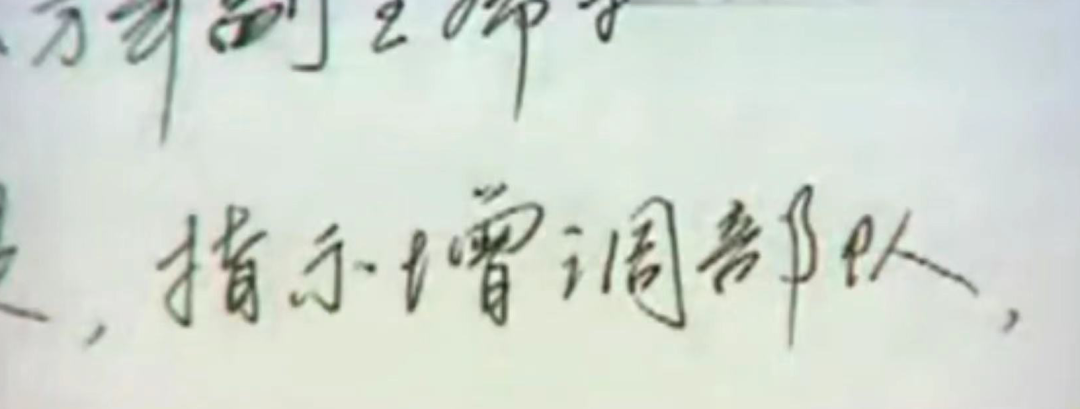 副主席
，指示增调部队，